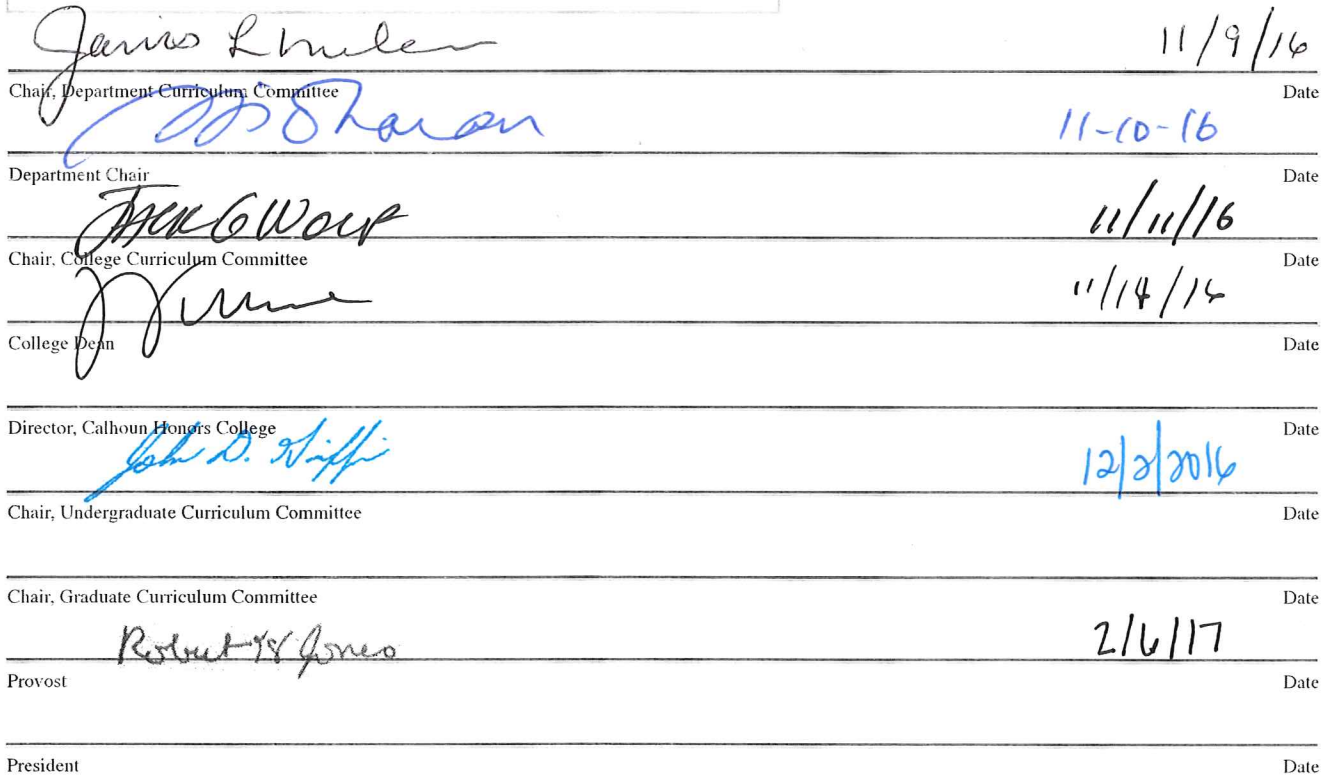 11/9/16
Chair, Department Curriculum Committee Date
11-10-16
Department Chair Date
11/11/16
Chair, College Curriculum Committee Date
11/14/16
College Dean Date
Director, Calhoun Honors College Date
John D. Griffi 12/2/2016
Chair, Undergraduate Curriculum Committee Date
Chair, Graduate Curriculum Committee Date
Robert H Jones 2/6/17
Provost Date
President Date